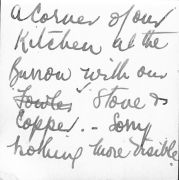 a corner of our
Kitchen at the
Burrow with our
Fowles Stove &
Copper. - Sorry
nothing more visible.